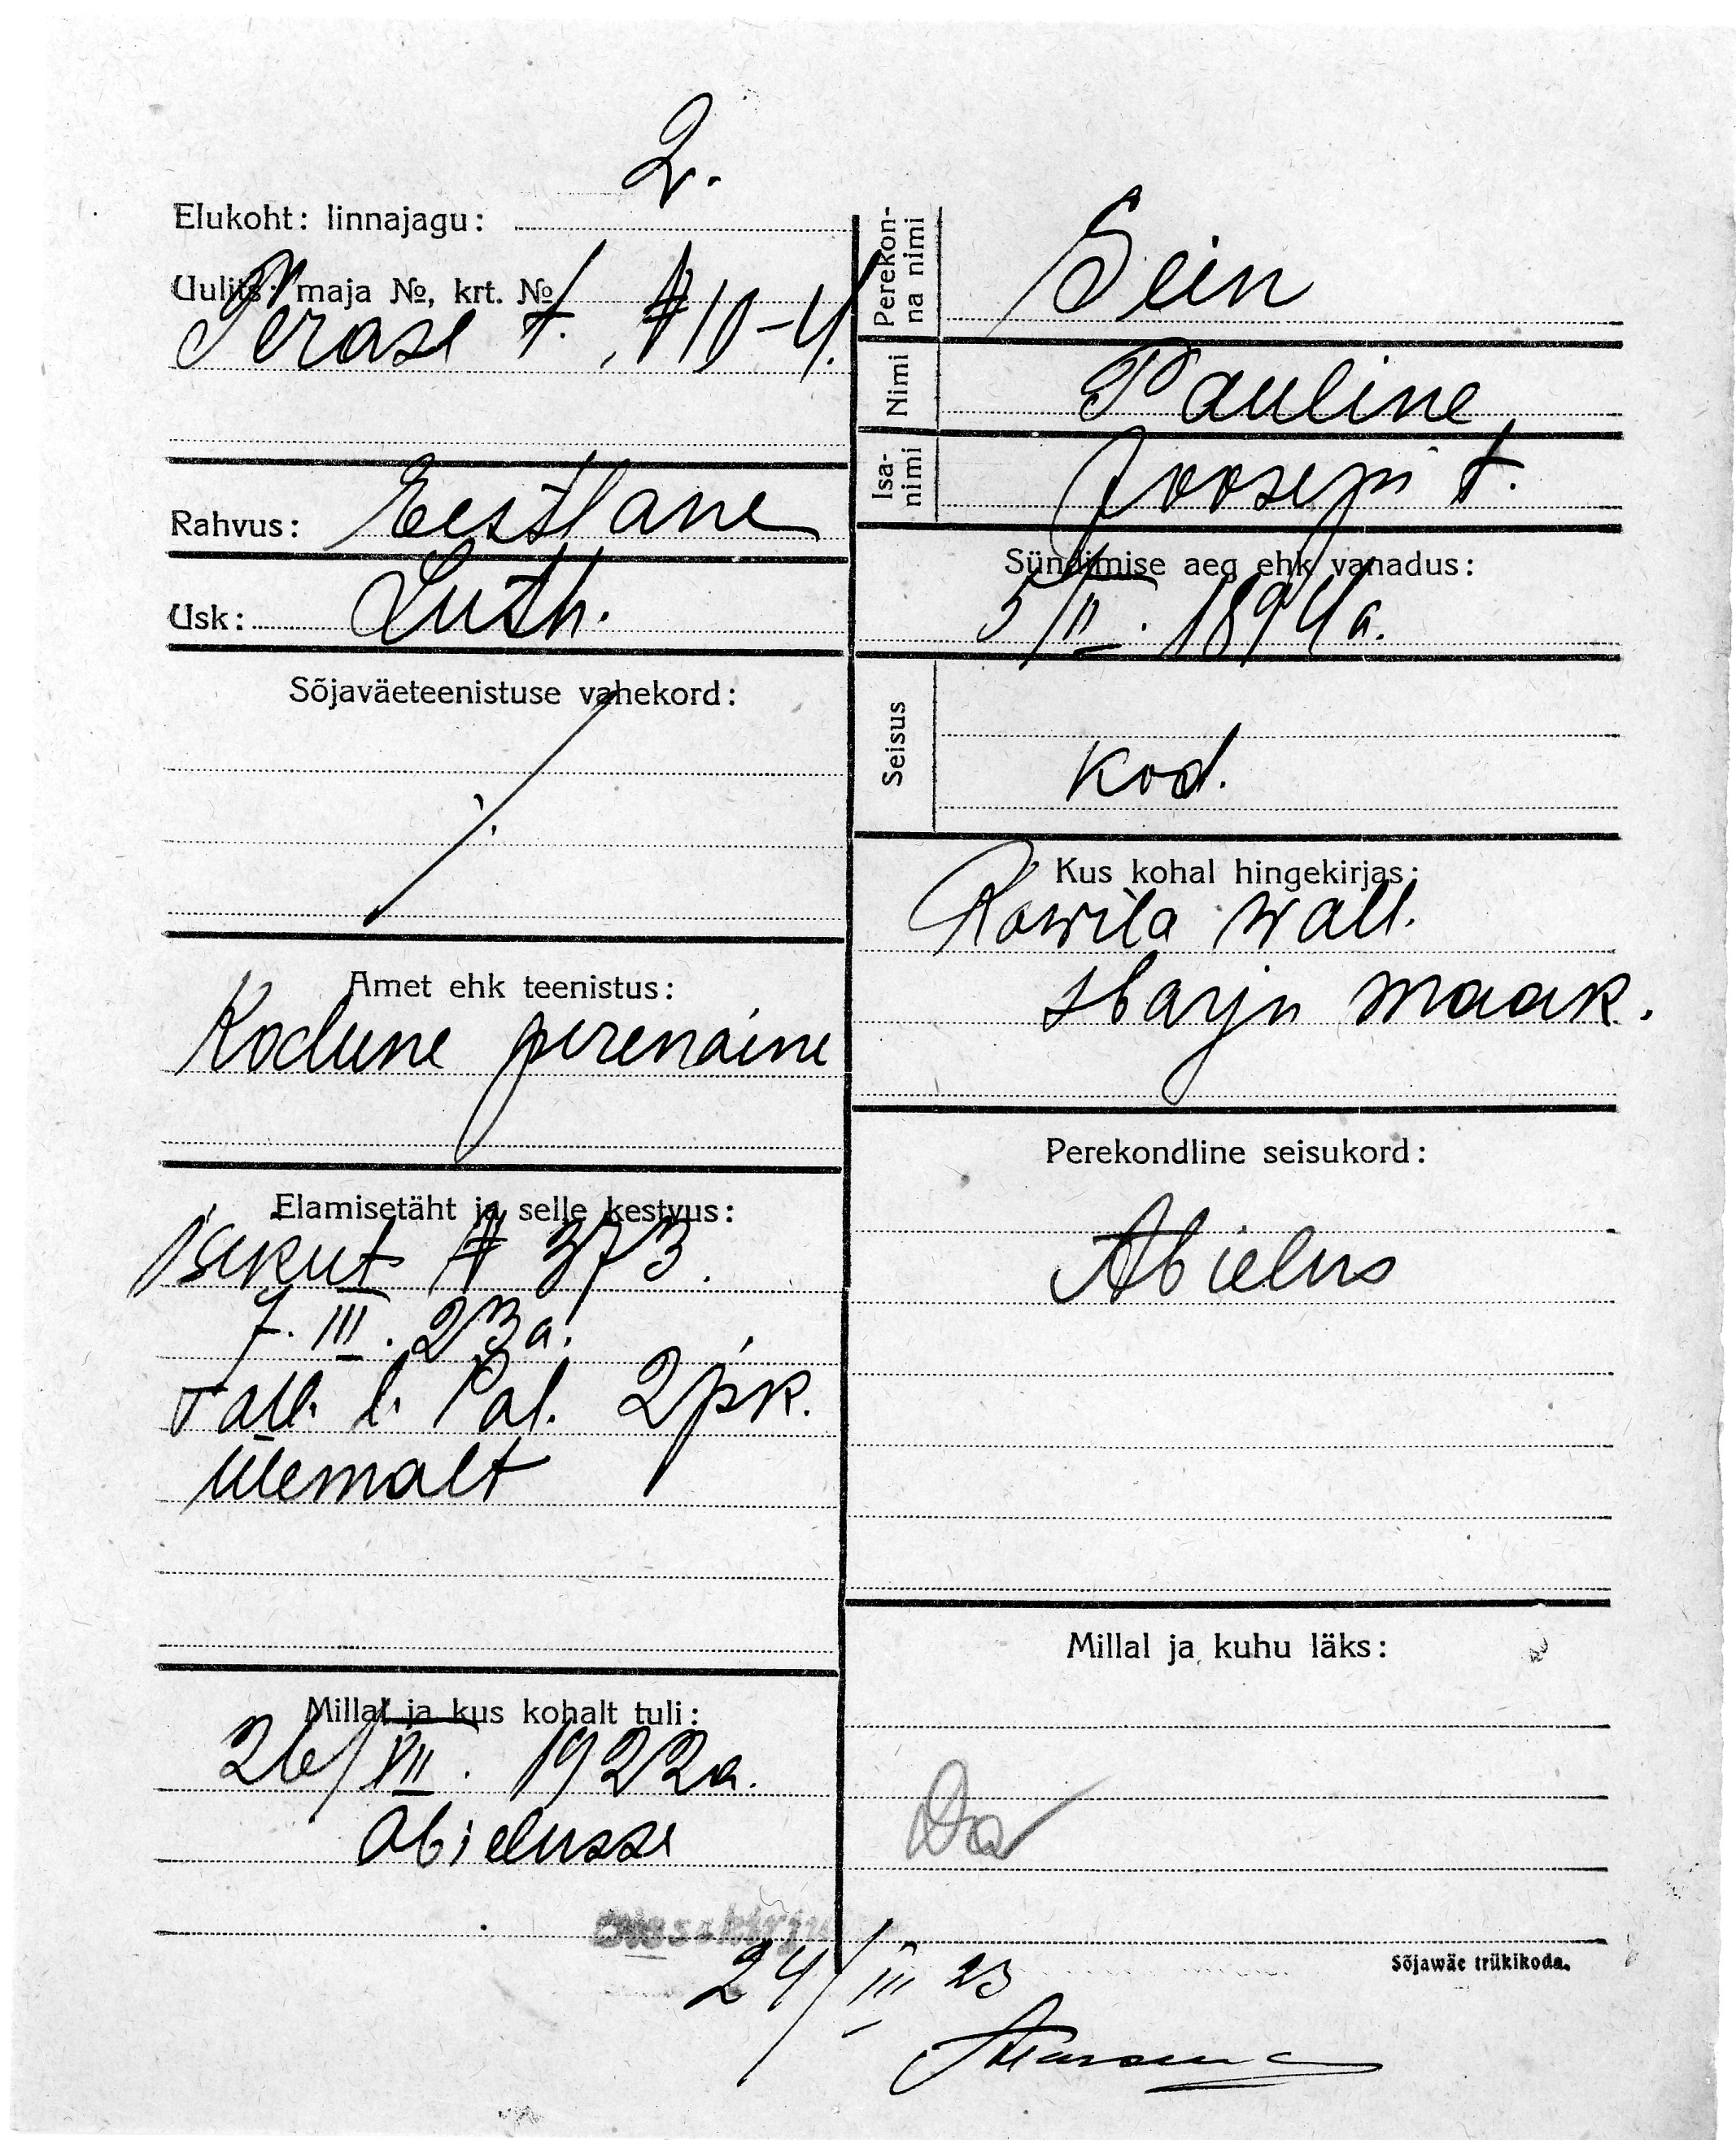 2.
Elukoht: linnajagu:
Uulits, maja №, krt. №
Terase t. № 10-4.
Rahvus: Eestlane
Usk: Luth.
Sõjaväeteenistuse vahekord:
Amet ehk teenistus:
Kodune perenaine
Elamisetäht ja selle kestvus:
Isikut № 373.
7. III. 23 a.
Tall. l. Pol. 2 jsk.
ülemalt
Millal ja kus kohalt tuli:
26/XII. 1922a.
abielusse
Perekonna nimi
Sein
Nimi
Pauline
Isanimi
Joosepi t.
Sündimise aeg ehk vanadus:
5/II. 1894 a.
Seisus
kod.
Kus kohal hingekirjas:
Rawila wall.
Harju maak.
Perekondline seisukord:
Abielus
Millal ja kuhu läks:
Sõjawäe trükikoda.
24/III 23